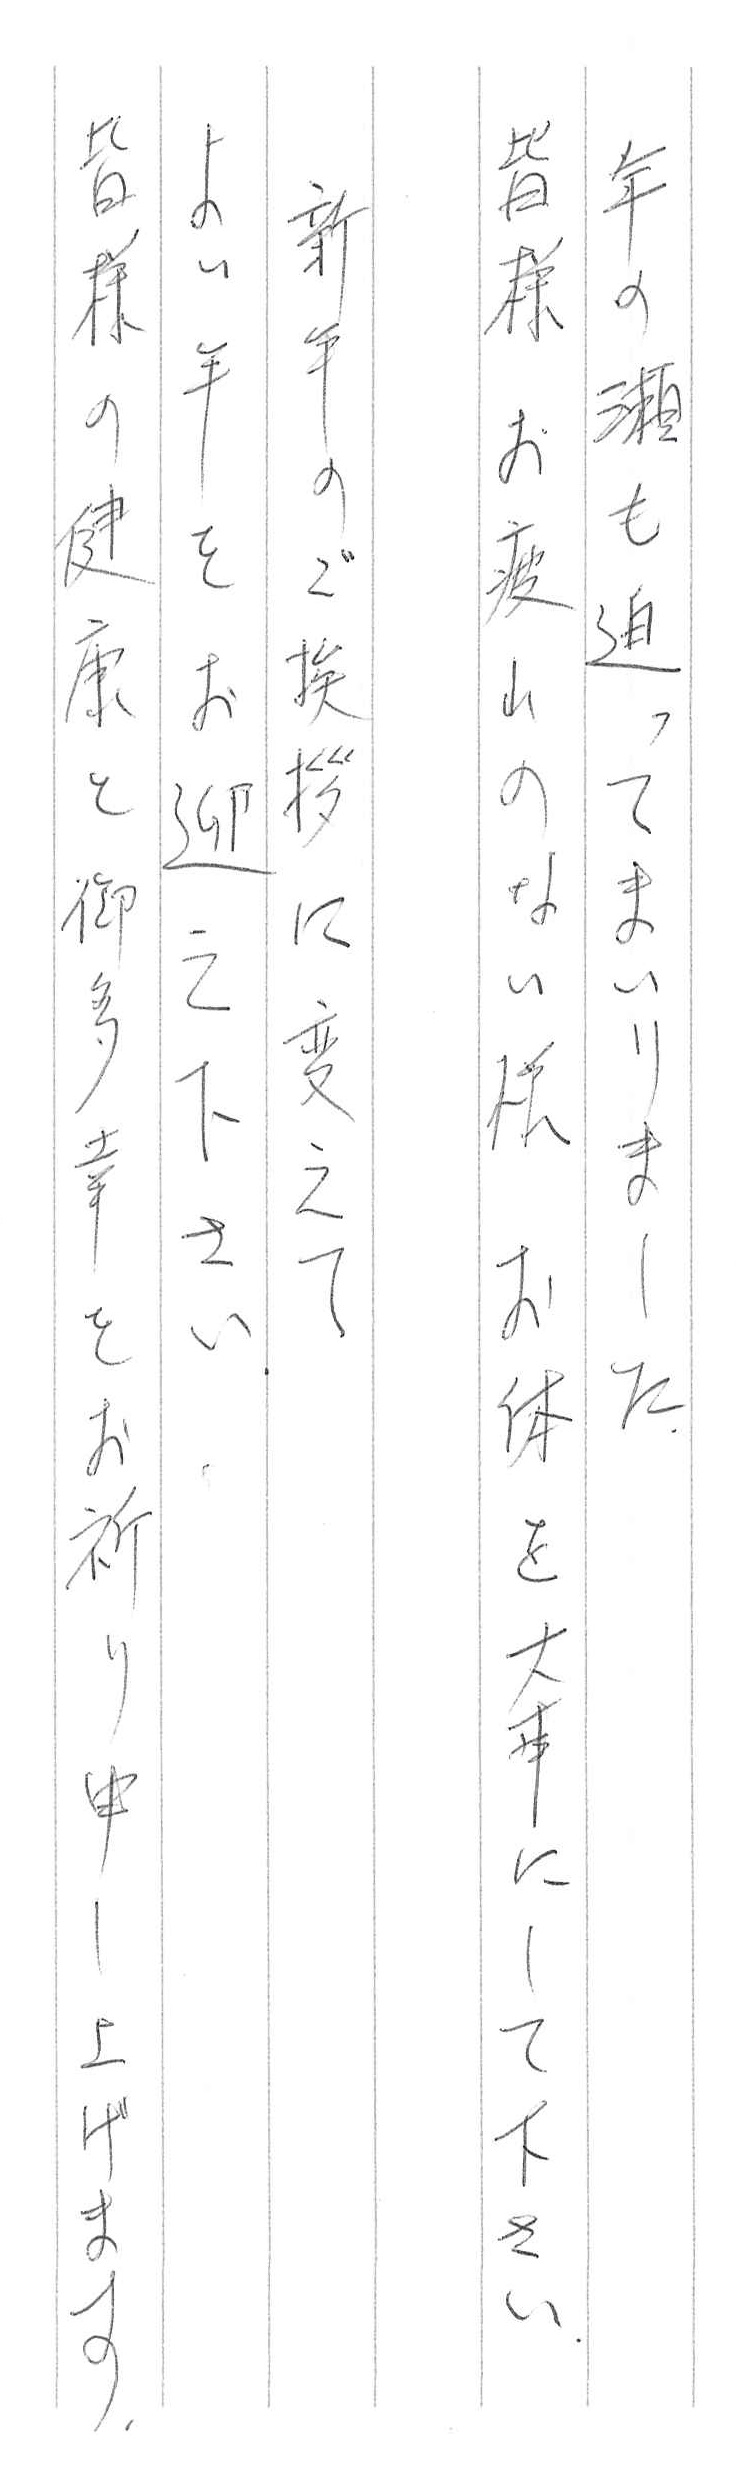 年の瀬も迫ってまいりました.
皆様お疲れのない様お体を大事にして下さい.
新年のご挨拶に変えて
よい年をお迎え下さい.
皆様の健康と御多幸をお祈り申し上げます.